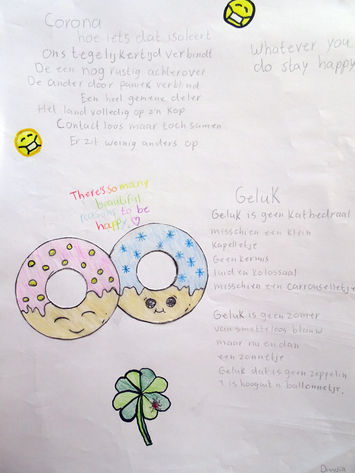 Corona
hoe iets dat isoleert
Ons tegelijkertijd verbindt
De een nog rustig achterover
De ander door paniek verblind
Een heel gemene deler
Het land volledig op z'n kop
Contactloos maar toch samen
Er zit weinig anders op
Whatever you
do stay happy
There's so many
beautiful
reasons to be
happy
Geluk
Geluk is geen Kathedraal
misschien een klein
Kapelletje
Geen kermis
luid en kolossaal
misschien een carrouselletje
Geluk is geen zomer
van smetteloos blauw
maar nu en dan
een zonnetje
Geluk dat is geen zeppelin
't is hooguit n ballonnetje.